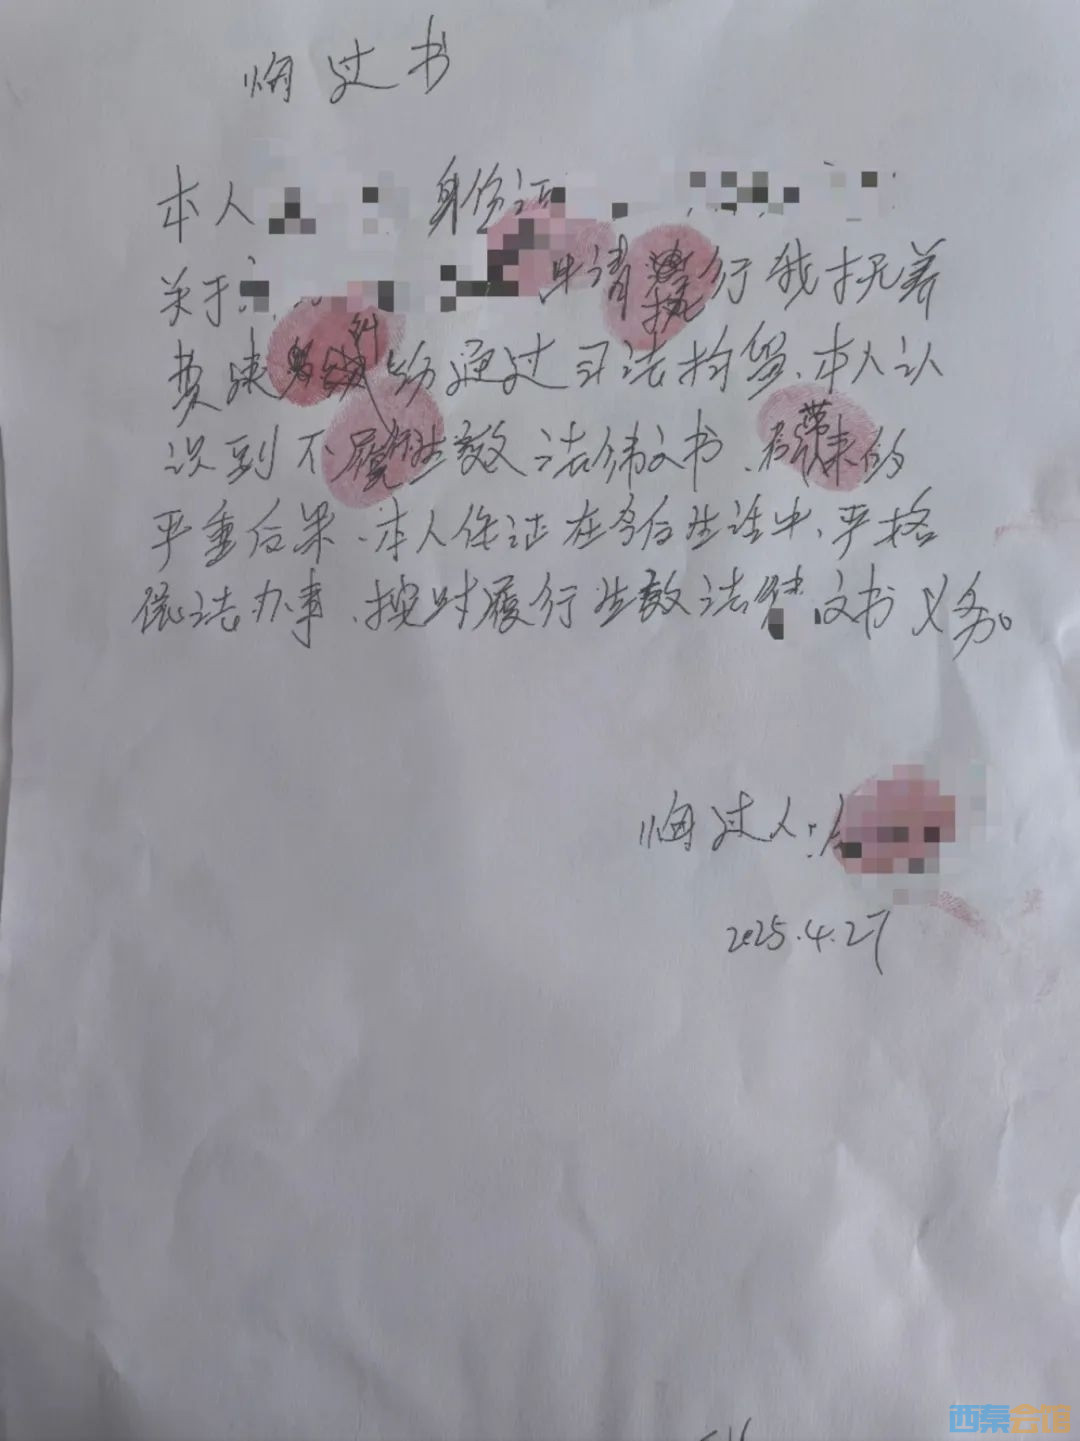 悔过书
本人 身份证
关于 申请执行我抚养
费 纠纷通过司法拘留、本人认
识到不履行生效法律文书、带来的
严重后果、本人保证在今后生活中、严格
依法办事、按时履行生效法律文书义务。
悔过人:
2025.4.27
西秦会馆